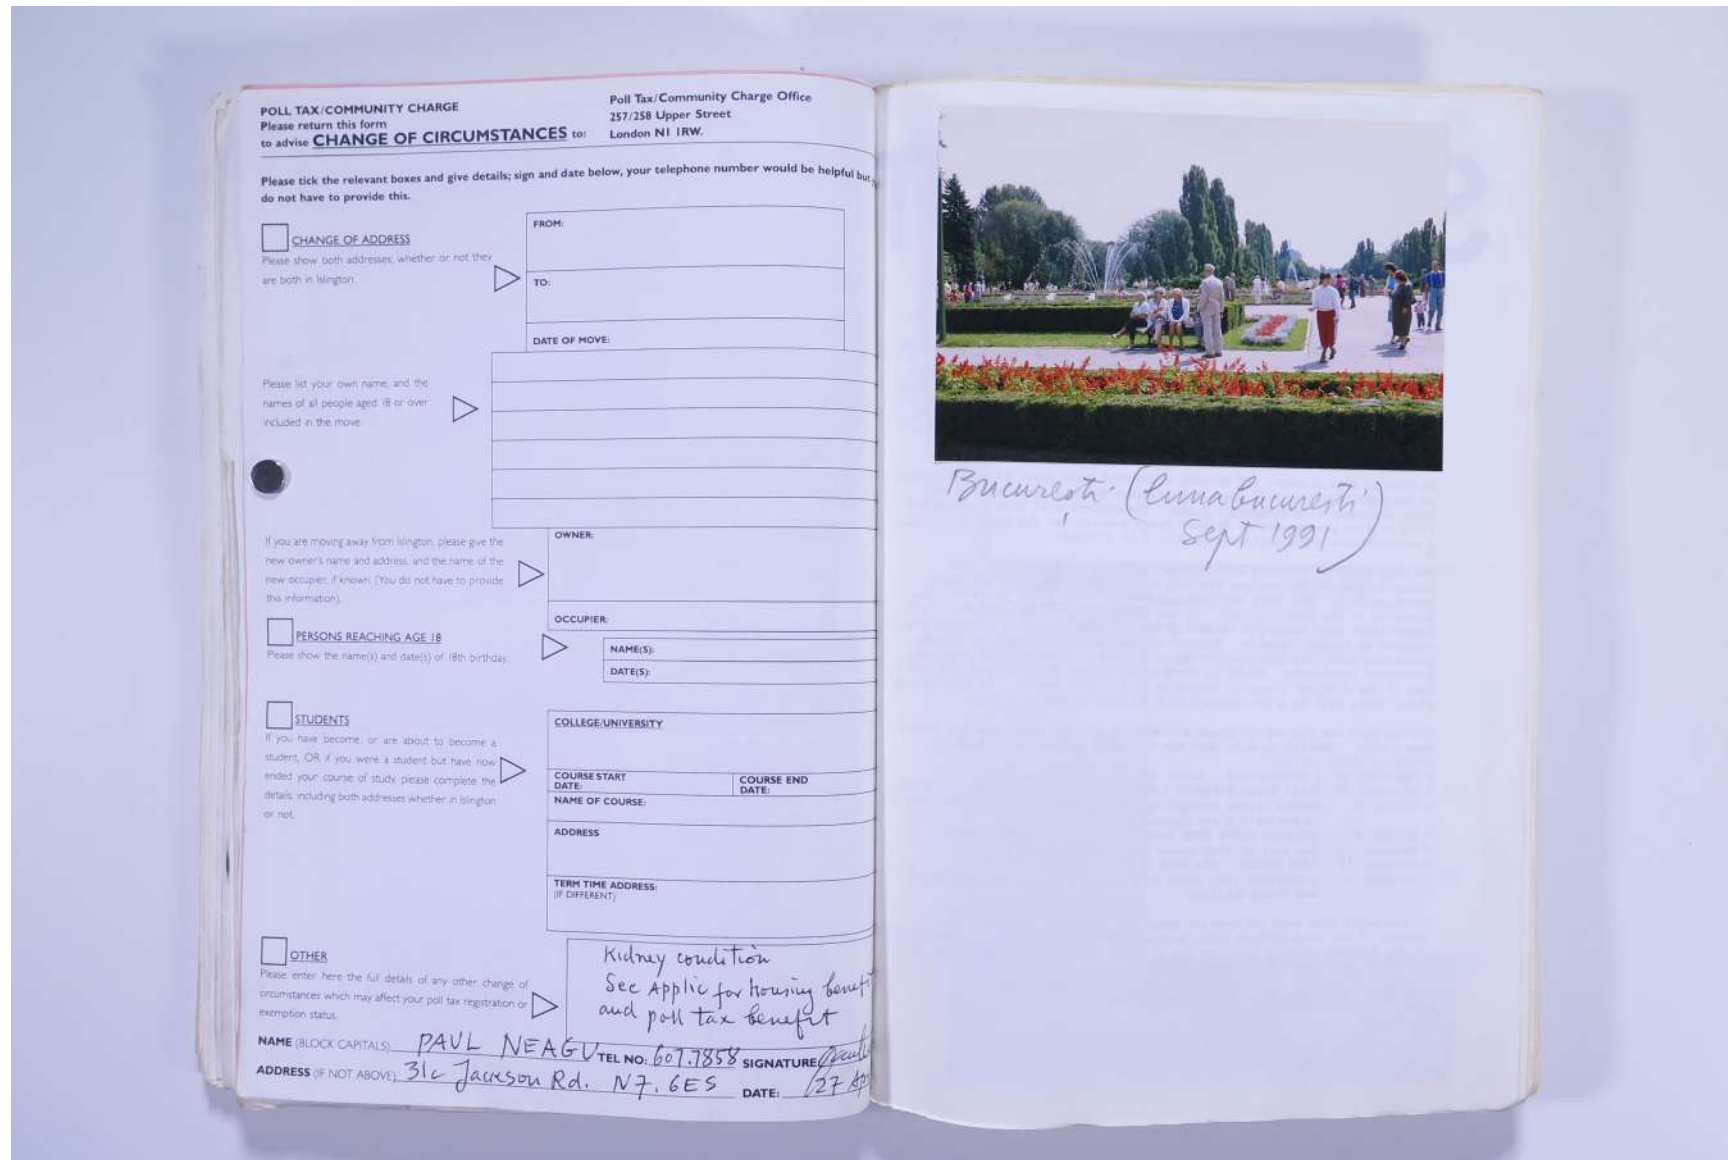 POLL TAX/COMMUNITY CHARGE
Please return this form
to advise CHANGE OF CIRCUMSTANCES to:
Poll Tax/Community Charge Office
257/258 Upper Street
London N1 1RW.
Please tick the relevant boxes and give details; sign and date below, your telephone number would be helpful but
do not have to provide this.
CHANGE OF ADDRESS
Please show both addresses, whether or not they
are both in Islington.
FROM:
TO:
DATE OF MOVE:
Please list your own name, and the
names of all people aged 18 or over
included in the move.
If you are moving away from Islington, please give the
new owner's name and address, and the name of the
new occupier, if known. (You do not have to provide
this information).
OWNER:
OCCUPIER:
PERSONS REACHING AGE 18
Please show the name(s) and date(s) of 18th birthday.
NAME(S):
DATE(S):
STUDENTS
If you have become, or are about to become a
student, OR if you were a student but have now
ended your course of study, please complete the
details, including both addresses whether in Islington
or not.
COLLEGE/UNIVERSITY
COURSE START
DATE:
COURSE END
DATE:
NAME OF COURSE:
ADDRESS
TERM TIME ADDRESS:
(IF DIFFERENT)
OTHER
Please enter here the full details of any other change of
circumstances which may affect your poll tax registration or
exemption status.
Kidney condition
See Applic for housing benefit
and poll tax benefit
NAME (BLOCK CAPITALS) PAUL NEAGU TEL NO: 607.7858 SIGNATURE
ADDRESS (IF NOT ABOVE) 31c Jackson Rd. N7. 6ES DATE: 27 Ap
București (luna bucuresti)
Sept 1991